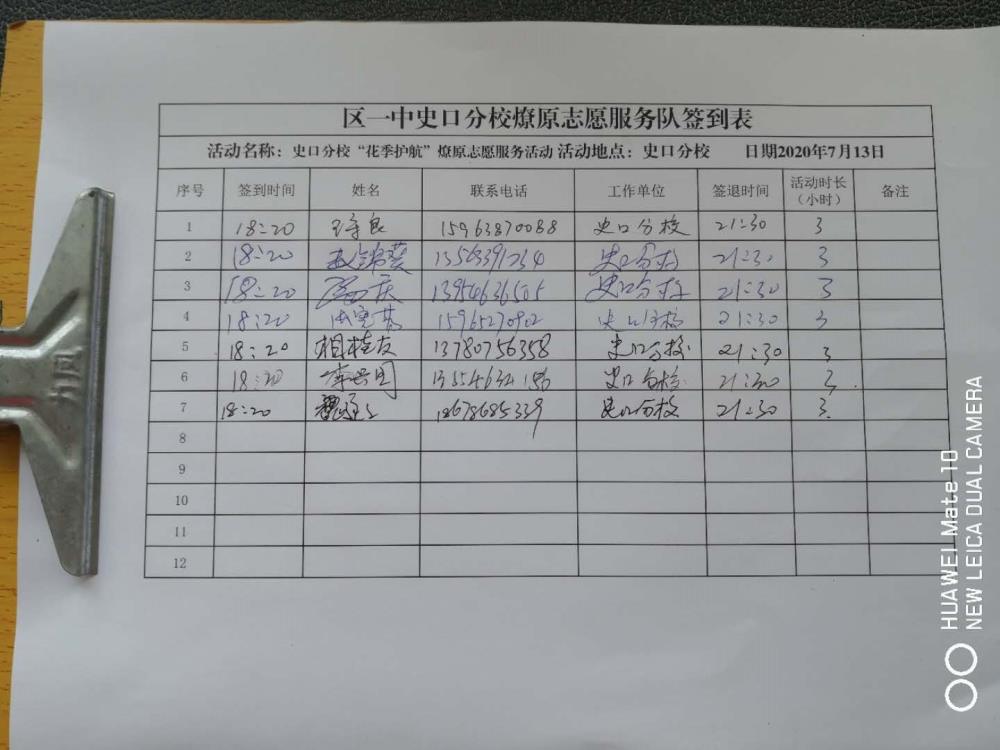 区一中史口分校燎原志愿服务队签到表
活动名称：史口分校“花季护航”燎原志愿服务活动 活动地点：史口分校 日期2020年7月13日
序号 签到时间 姓名 联系电话 工作单位 签退时间 活动时长（小时） 备注
1 18:20 15963870088 史口分校 21:30 3
2 18:20 赵锦葵 13563391234 史口分校 21:30 3
3 18:20 13954636505 史口分校 21:30 3
4 18:20 15965270902 史口分校 21:30 3
5 18:20 相桂友 13780756358 史口分校 21:30 3
6 18:20 史口分校 21:30 3
7 18:20 18678685339 史口分校 21:30 3
8
9
10
11
12
HUAWEI Mate 10
NEW LEICA DUAL CAMERA